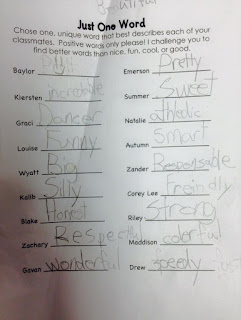 Beautiful
Just One Word
Chose one, unique word that best describes each of your
classmates. Positive words only please! I challenge you to
find better words than nice, fun, cool, or good.
Baylor
Emerson Pretty
Kiersten incredible
Summer Sweet
Graci Dancer
Natalie athletic
Louise Funny
Autumn Smart
Wyatt Big
Zander Responsable
Kalib Silly
Corey Lee Freindly
Blake Honest
Riley Strong
Zachary Respectful
Maddison colerful
Gavan wonderful
Drew speedy